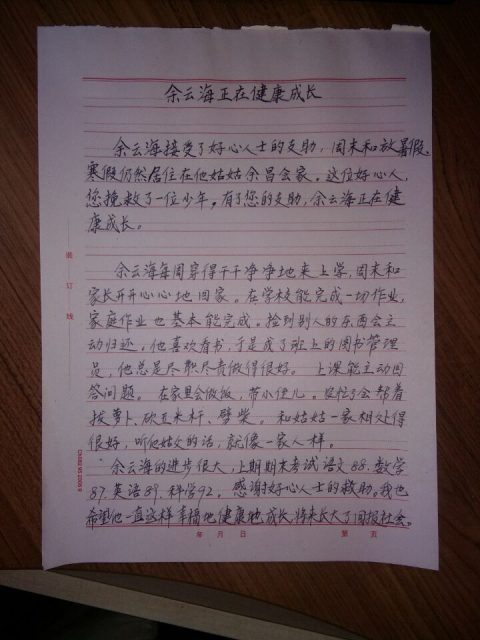 余云海正在健康成长
余云海接受了好心人士的支助,周末和放暑假、
寒假仍然居住在他姑姑余昌会家。这位好心人,
您挽救了一位少年,有了您的支助,余云海正在健
康成长。
余云海每周穿得干干净净地来上学,周末和
家长开开心心地回家。在学校能完成一切作业,
家庭作业也基本能完成。捡到别人的东西会主
动归还,他喜欢看书,于是成了班上的图书管理
员,他总是尽职尽责做得很好。上课能主动回
答问题。在家里会做饭,带小侄儿。农忙了会帮着
拔萝卜、砍玉米杆、劈柴。和姑姑一家相处得
很好,听他姑父的话,就像一家人一样。
余云海的进步很大,上期期末考试语文88.数学
87.英语89.科学92。感谢好心人士的救助。我也
希望他一直这样幸福地健康地成长,将来长大了回报社会。
装订线
年 月 日 第 页